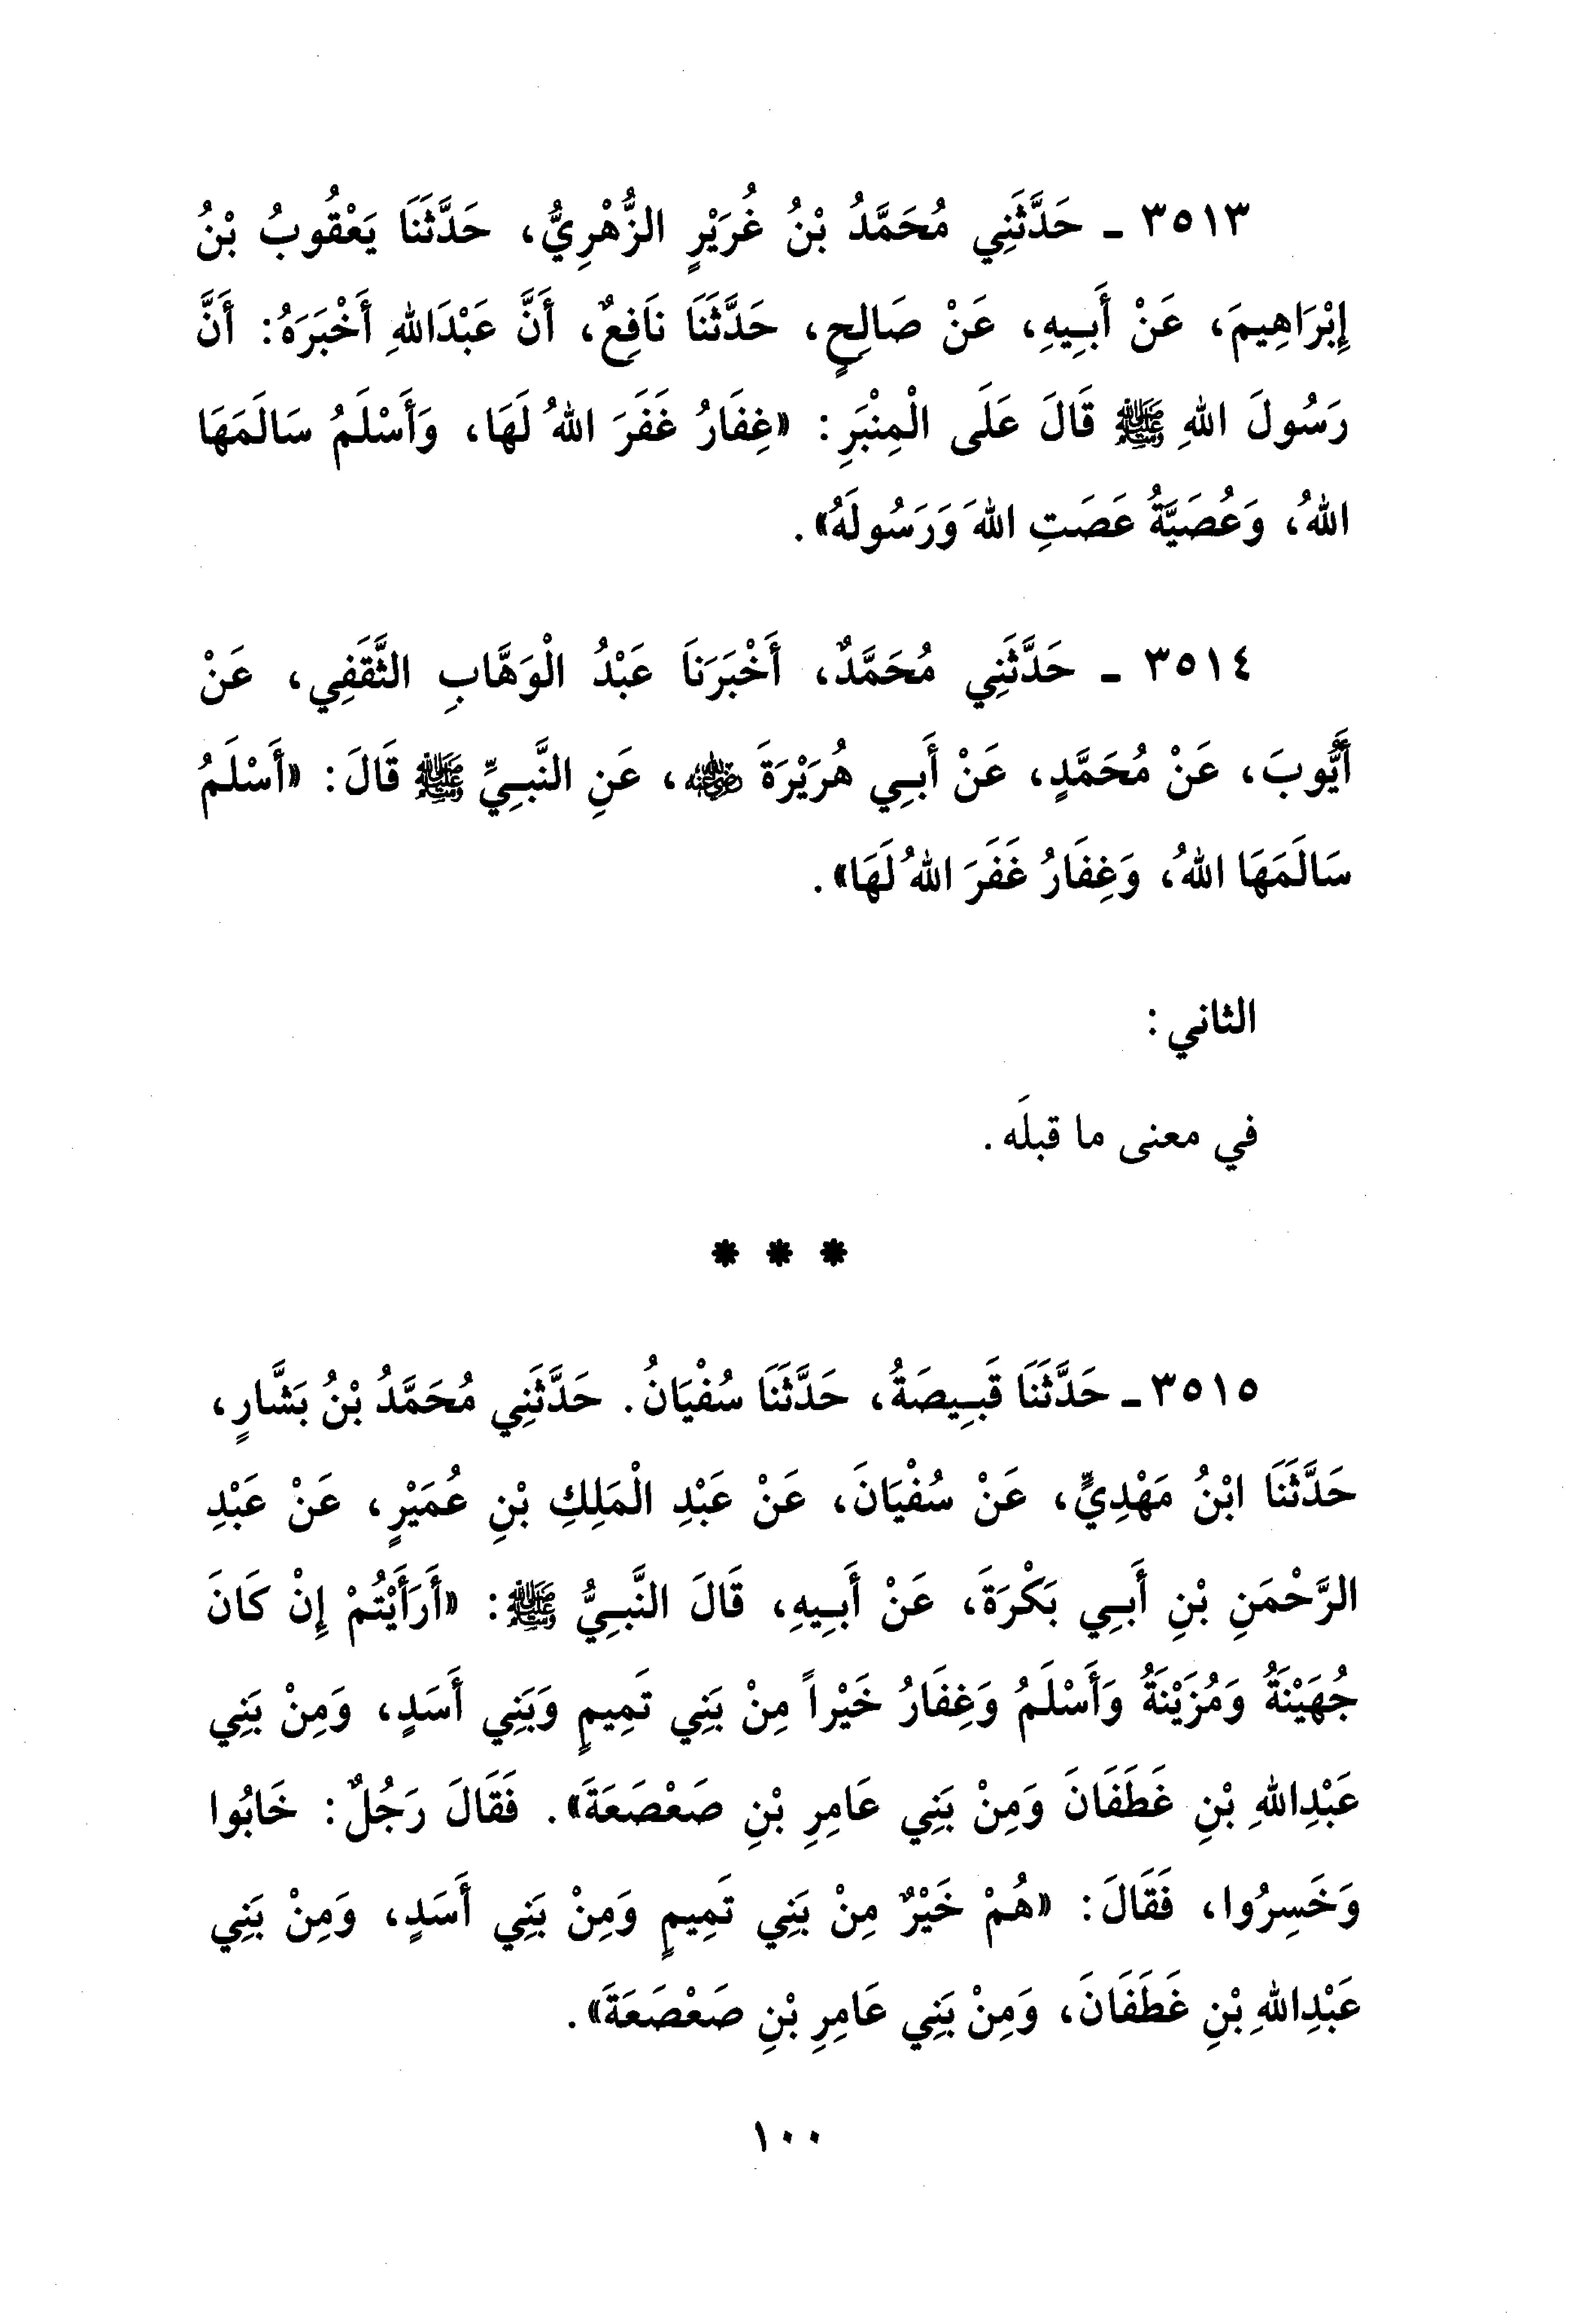 ٣٥١٣ ـ حَدَّثَنِي مُحَمَّدُ بْنُ غُرَيْرٍ الزُّهْرِيُّ، حَدَّثَنَا يَعْقُوبُ بْنُ
إِبْرَاهِيمَ، عَنْ أَبِيهِ، عَنْ صَالِحٍ، حَدَّثَنَا نَافِعٌ، أَنَّ عَبْدَاللهِ أَخْبَرَهُ: أَنَّ
رَسُولَ اللهِ ﷺ قَالَ عَلَى الْمِنْبَرِ: «غِفَارُ غَفَرَ اللهُ لَهَا، وَأَسْلَمُ سَالَمَهَا
اللهُ، وَعُصَيَّةُ عَصَتِ اللهَ وَرَسُولَهُ».
٣٥١٤ ـ حَدَّثَنِي مُحَمَّدٌ، أَخْبَرَنَا عَبْدُ الْوَهَّابِ الثَّقَفِي، عَنْ
أَيُّوبَ، عَنْ مُحَمَّدٍ، عَنْ أَبِي هُرَيْرَةَ رضي الله عنه، عَنِ النَّبِيِّ ﷺ قَالَ: «أَسْلَمُ
سَالَمَهَا اللهُ، وَغِفَارُ غَفَرَ اللهُ لَهَا».
الثاني:
في معنى ما قبلَه.
* * *
٣٥١٥ ـ حَدَّثَنَا قَبِيصَةُ، حَدَّثَنَا سُفْيَانُ. حَدَّثَنِي مُحَمَّدُ بْنُ بَشَّارٍ،
حَدَّثَنَا ابْنُ مَهْدِيٍّ، عَنْ سُفْيَانَ، عَنْ عَبْدِ الْمَلِكِ بْنِ عُمَيْرٍ، عَنْ عَبْدِ
الرَّحْمَنِ بْنِ أَبِي بَكْرَةَ، عَنْ أَبِيهِ، قَالَ النَّبِيُّ ﷺ: «أَرَأَيْتُمْ إِنْ كَانَ
جُهَيْنَةُ وَمُزَيْنَةُ وَأَسْلَمُ وَغِفَارُ خَيْراً مِنْ بَنِي تَمِيمٍ وَبَنِي أَسَدٍ، وَمِنْ بَنِي
عَبْدِاللهِ بْنِ غَطَفَانَ وَمِنْ بَنِي عَامِرِ بْنِ صَعْصَعَةَ». فَقَالَ رَجُلٌ: خَابُوا
وَخَسِرُوا، فَقَالَ: «هُمْ خَيْرٌ مِنْ بَنِي تَمِيمٍ وَمِنْ بَنِي أَسَدٍ، وَمِنْ بَنِي
عَبْدِاللهِ بْنِ غَطَفَانَ، وَمِنْ بَنِي عَامِرِ بْنِ صَعْصَعَةَ».
١٠٠